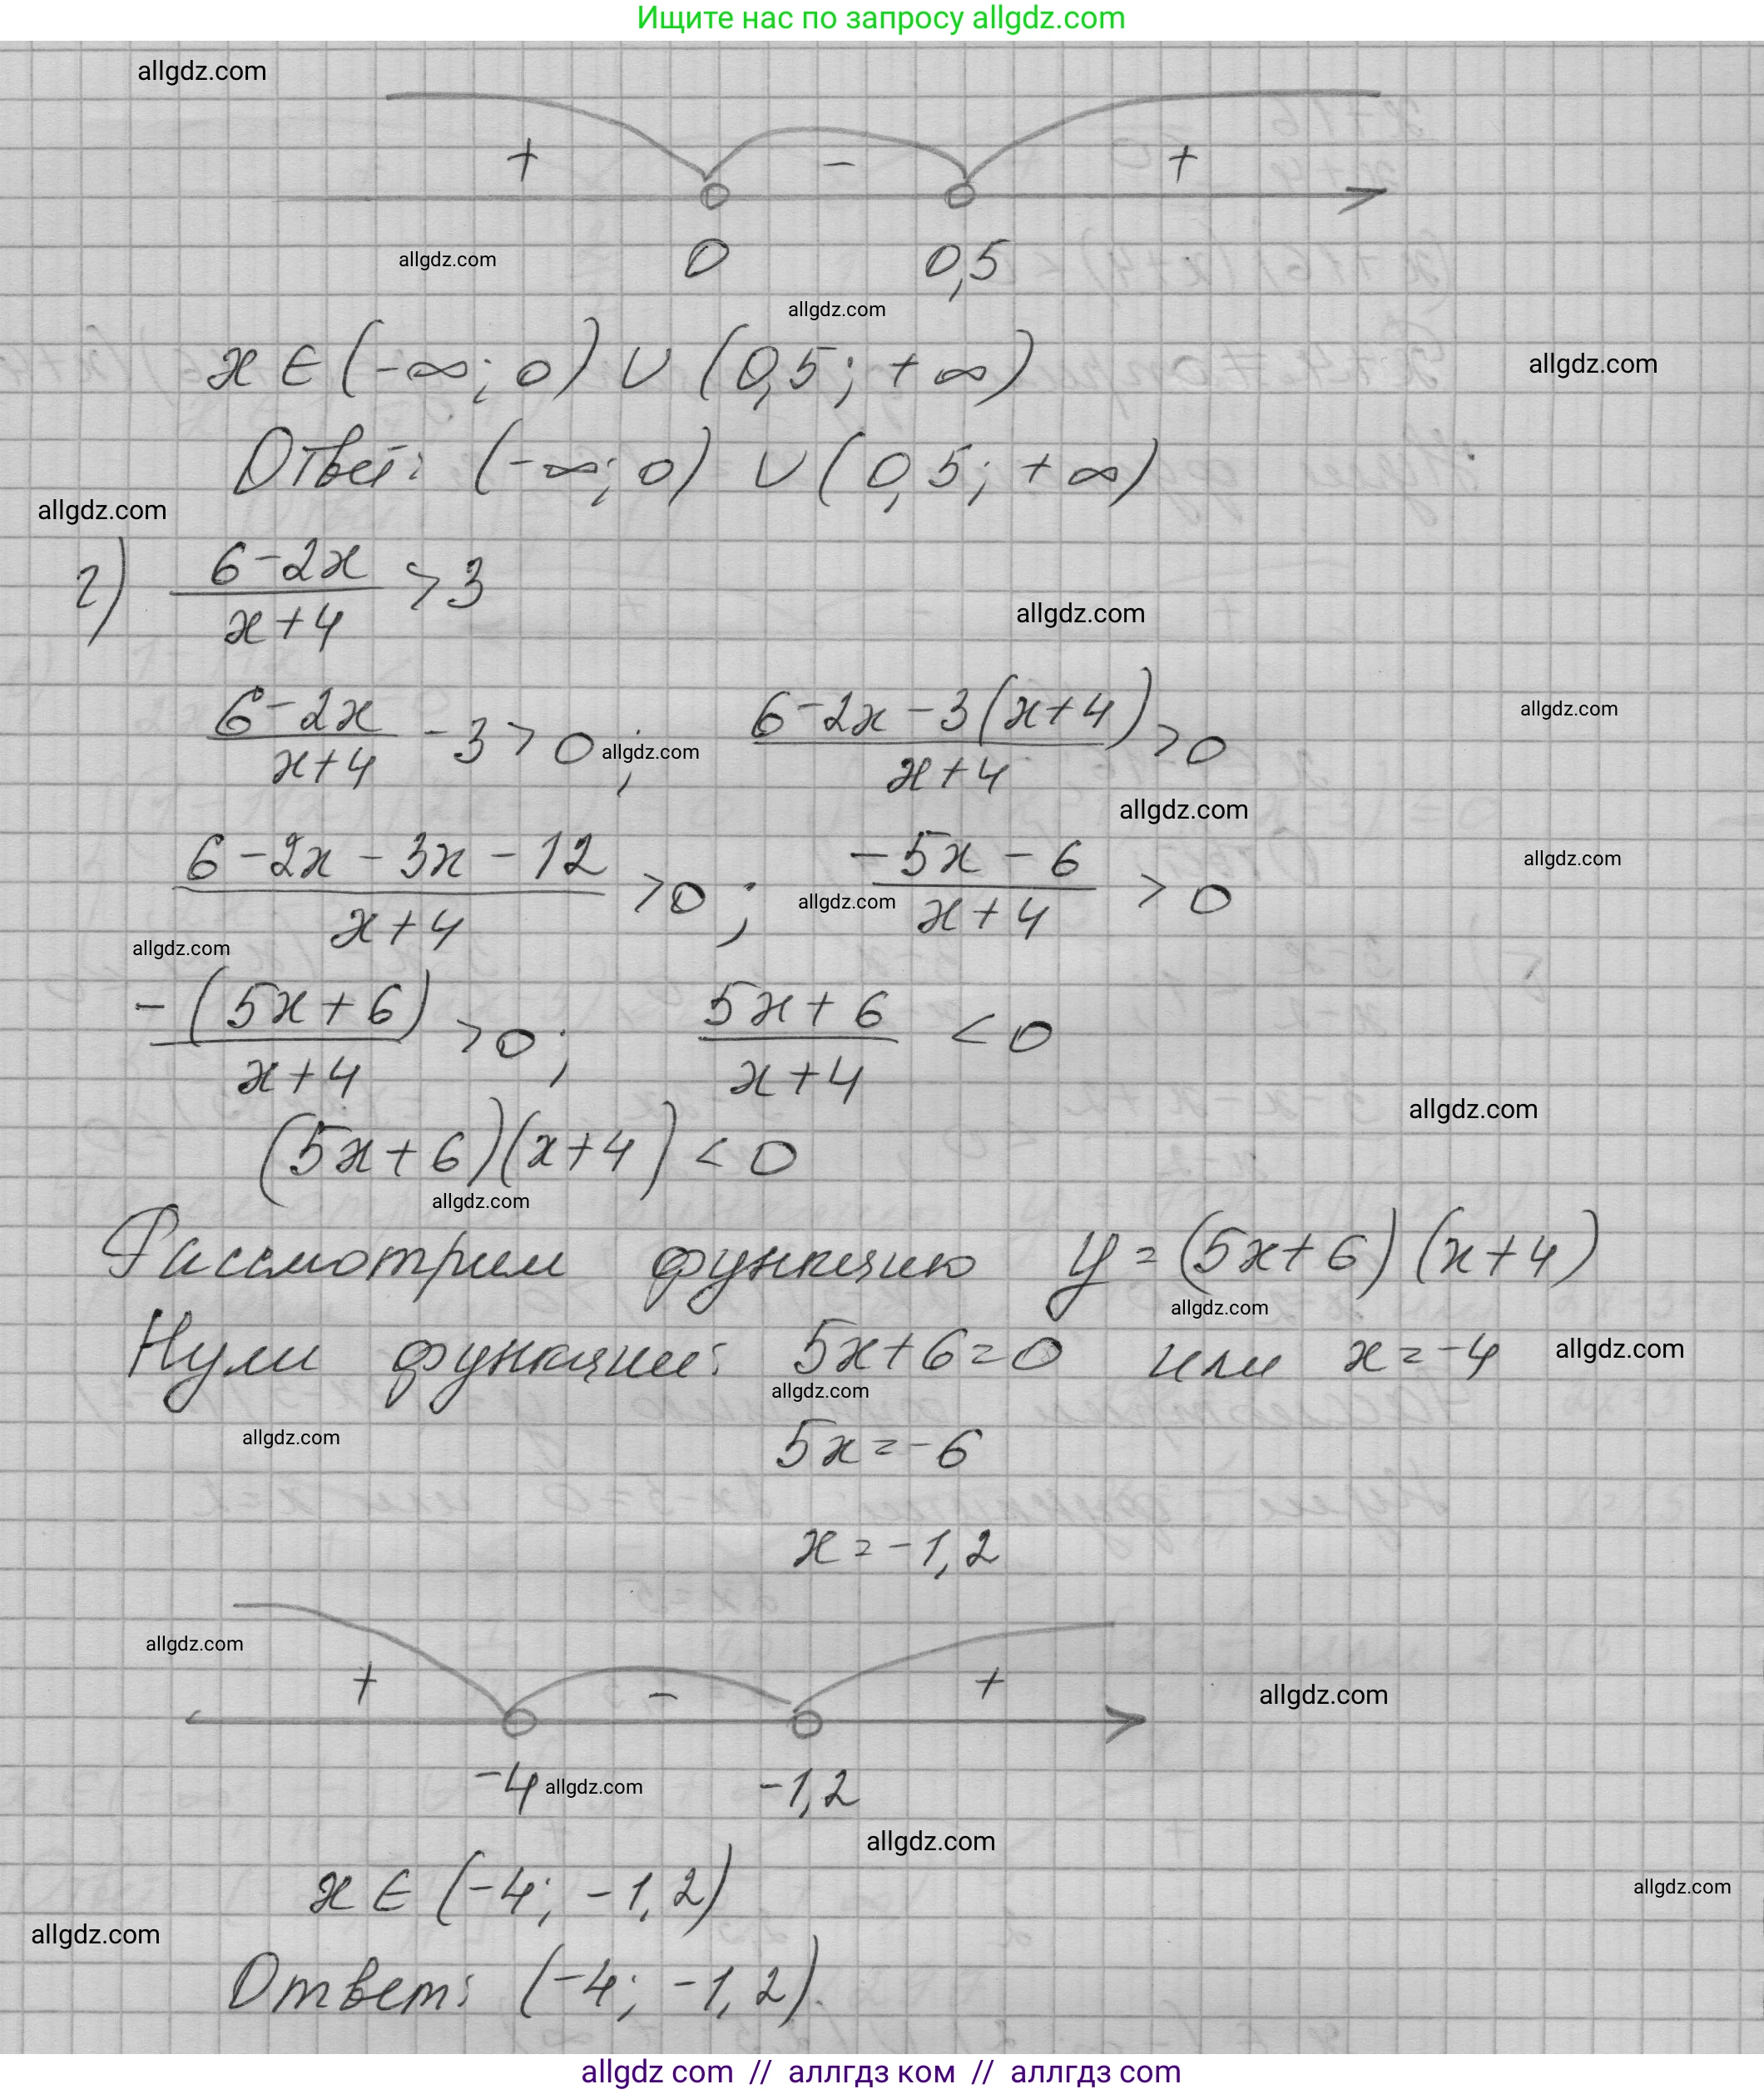 Ищите нас по запросу allgdz.com
allgdz.com
+ - +
0 0,5
allgdz.com
allgdz.com
x ∈ (-∞; 0) ∪ (0,5; +∞)
allgdz.com
Ответ: (-∞; 0) ∪ (0,5; +∞)
allgdz.com
г) (6-2x)/(x+4) > 3
allgdz.com
(6-2x)/(x+4) - 3 > 0; (6-2x-3(x+4))/(x+4) > 0
allgdz.com
allgdz.com
allgdz.com
(6-2x-3x-12)/(x+4) > 0; (-5x-6)/(x+4) > 0
allgdz.com
allgdz.com
allgdz.com
-(5x+6)/(x+4) > 0; (5x+6)/(x+4) < 0
allgdz.com
(5x+6)(x+4) < 0
allgdz.com
Рассмотрим функцию y = (5x+6)(x+4)
allgdz.com
Нули функции: 5x+6=0 или x=-4
allgdz.com
allgdz.com
allgdz.com
5x=-6
x=-1,2
allgdz.com
+ - +
allgdz.com
-4 -1,2
allgdz.com
allgdz.com
x ∈ (-4; -1,2)
allgdz.com
allgdz.com
Ответ: (-4; -1,2).
allgdz com // аллгдз ком // аллгдз com